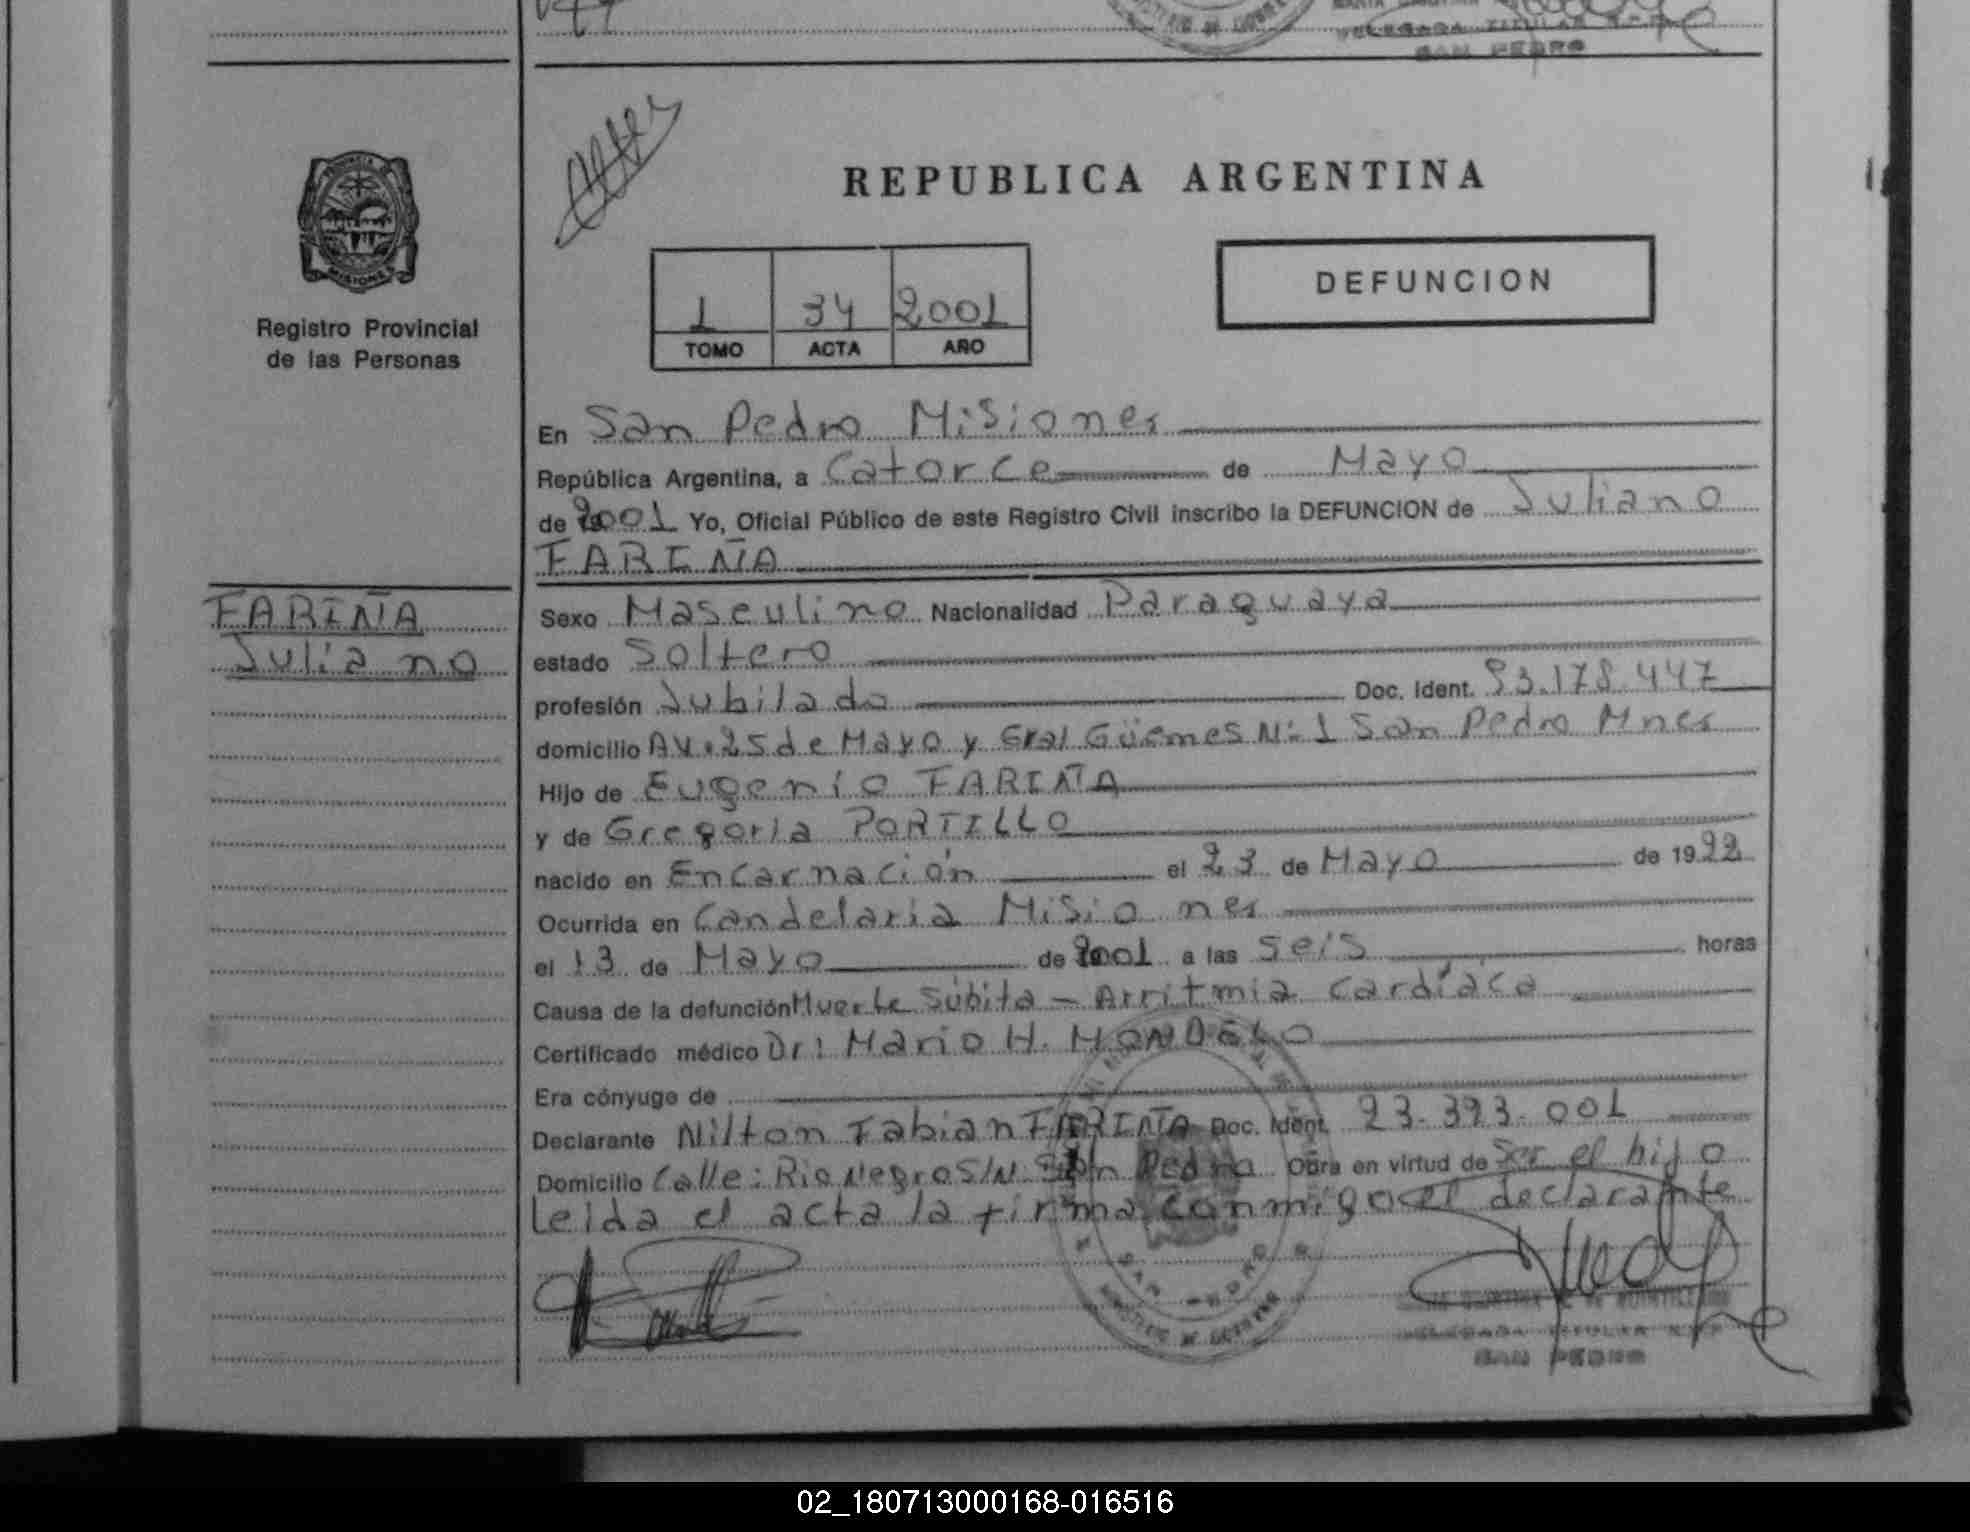 DELEGADA TITULAR R.P.P.
SAN PEDRO
PROVINCIA DE
MISIONES
Registro Provincial
de las Personas
REPUBLICA ARGENTINA
1 34 2001
TOMO ACTA AÑO
DEFUNCION
En San Pedro Misiones
República Argentina, a Catorce de Mayo
de 2001 Yo, Oficial Público de este Registro Civil inscribo la DEFUNCION de Juliano
FARIÑA
FARIÑA
Juliano
Sexo Masculino Nacionalidad Paraguaya
estado Soltero
profesión Jubilado Doc. Ident. 93.178.447
domicilio Av. 25 de Mayo y Gral Güemes Nº 1 San Pedro Mnes
Hijo de Eugenio FARIÑA
y de Gregoria PORTILLO
nacido en Encarnación el 23 de Mayo de 1922
Ocurrida en Candelaria Misiones
el 13 de Mayo de 2001 a las seis horas
Causa de la defunción Muerte Súbita - Arritmia Cardíaca
Certificado médico Dr: Mario H. MONDELO
Era cónyuge de
Declarante Nilton Fabian FARIÑA Doc. Ident. 23.393.001
Domicilio Calle: Rio Negro S/N San Pedro Obra en virtud de Ser el hijo
Leida el acta la firma conmigo el declarante
SAN PEDRO
MINISTERIO DE GOBIERNO
DELEGADA TITULAR R.P.P.
SAN PEDRO
02_180713000168-016516